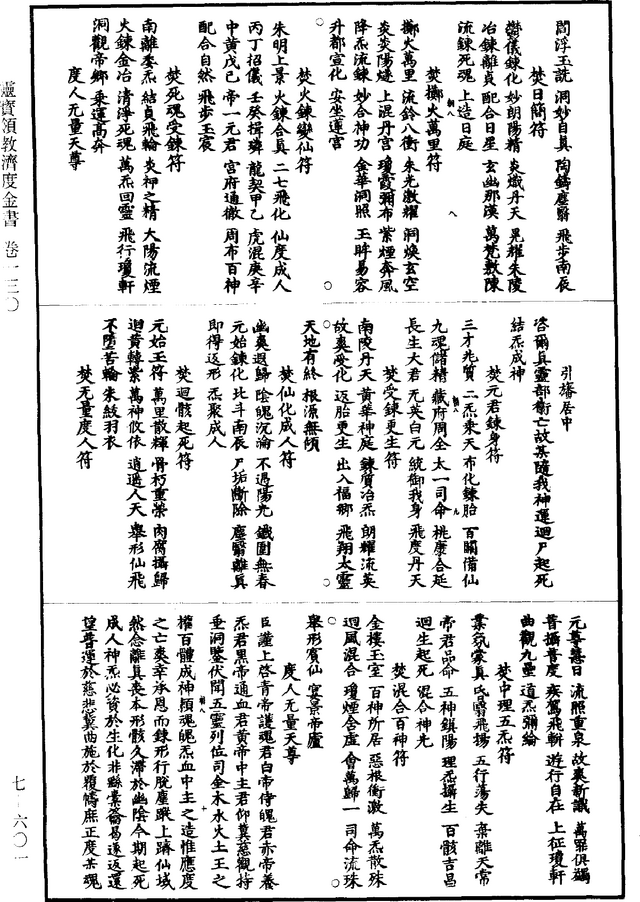 閻浮玉說 洞妙自真 陶鑄塵翳 飛步南辰
焚日簡符
鬱儀鍊化 妙朗陽精 炎熾丹天 晃耀朱陵
冶鍊離貞 配合日星 玄幽那漢 萬梵敷陳
流鍊死魂 上造日庭
焚擲火萬里符
擲火萬里 流鈴八衝 朱光激耀 洞煥玄空
炎炎陽燧 上混丹宮 瓊霞彌布 紫煙奔風
降炁流鍊 妙合神功 金華洞照 玉眸易容
升都宣化 安坐蓬宮
焚火鍊變仙符
朱明上景 火鍊合真 二七飛化 仙度成人
丙丁招儀 壬癸揖璘 龍契甲乙 虎混庚辛
中黃戊己 帝一元君 宮府通徹 周布百神
配合自然 飛步玉宸
焚死魂受鍊符
南離委炁 結貞飛輪 炎神之精 大陽流煙
火鍊金冶 清淨死魂 萬炁回靈 飛行瓊軒
洞觀帝鄉 乘運高奔
度人无量天尊
引旛居中
咨爾真靈部衛亡故某隨我神運迴尸起死
結炁成神
焚元君鍊身符
三才兆質 二炁乘天 布化鍊胎 百關備仙
九魂儲精 藏府周全 太一司命 桃康合延
長生大君 元英白元 統御我身 飛度丹天
焚受鍊更生符
南陵丹天 黃華神庭 鍊質冶炁 朗耀流英
故爽受化 返胎更生 出入福鄉 飛翔太靈
天地有終 根源無傾
焚仙化成人符
幽爽遐歸 陰魄沉淪 不遇陽光 鐵圍無春
元始鍊化 北斗南辰 尸垢斷除 塵翳離真
即得返形 炁聚成人
焚迴骸起死符
元始玉符 萬里散輝 骨朽重榮 肉腐攝歸
迴黃轉紫 萬神攸依 逍遥人天 舉形仙飛
不墮苦輪 朱紱羽衣
焚无量度人符
元尊慧日 流照重泉 故爽新識 萬罪俱蠲
普攝普度 疾駕飛軿 遊行自在 上征瓊軒
曲觀九壘 道炁彌綸
焚中理五炁符
業氛蒙真 翳飛揚 五行蕩失 棄離天常
帝君品命 五神鎮陽 理炁撰生 百骸吉昌
迴生起死 混合神光
焚混合百神符
金樓玉室 百神所居 惡根衝激 萬炁散殊
迴風混合 瓊煙舍虛 會萬歸一 司命流珠
舉形賓仙 宴景帝廬
度人无量天尊
臣謹上啓青帝護魂君白帝侍魄君赤帝養
炁君黑帝通血君黃帝中主君仰冀慈觀特
垂洞鑒伏聞五靈列位司金木水火土王之
權百體成神賴魂魄炁血中主之造惟應度
之亡爽幸承恩而鍊形行脫塵蹤上躋仙域
然念離真喪本形骸久滯於幽陰今期起死
成人神炁必資於生化非緣業易遂返還
望普運於慈悲冀曲施於覆幬庶正度某魂
靈寶領教濟度金書 卷一三〇
七－六〇一